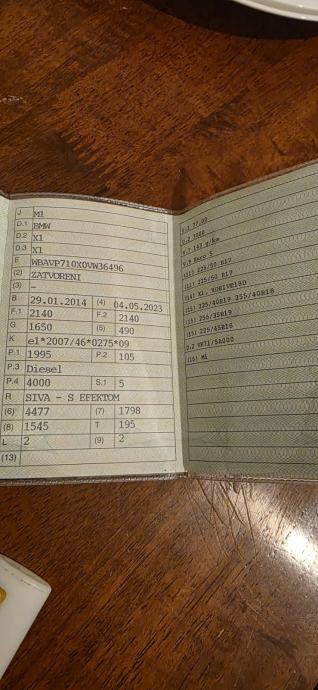 J M1
D.1 BMW
D.2 X1
D.3 X1
E WBAVP710X0VW36496
(2) ZATVORENI
(3) –
B 29.01.2014 (4) 04.05.2023
F.1 2140 F.2 2140
G 1650 (5) 490
K e1*2007/46*0275*09
P.1 1995 P.2 105
P.3 Diesel
P.4 4000 S.1 5
R SIVA - S EFEKTOM
(6) 4477 (7) 1798
(8) 1545 T 195
L 2 (9) 2
(13)
V.7 143 g/km
V.9 Euro 5
(11) 225/50 R17
(11) 225/50 R17
(14) X1, XDRIVE18D
(15) 225/40R19 255/40R18
(15) 255/35R19
(15) 225/45R18
(16) M1